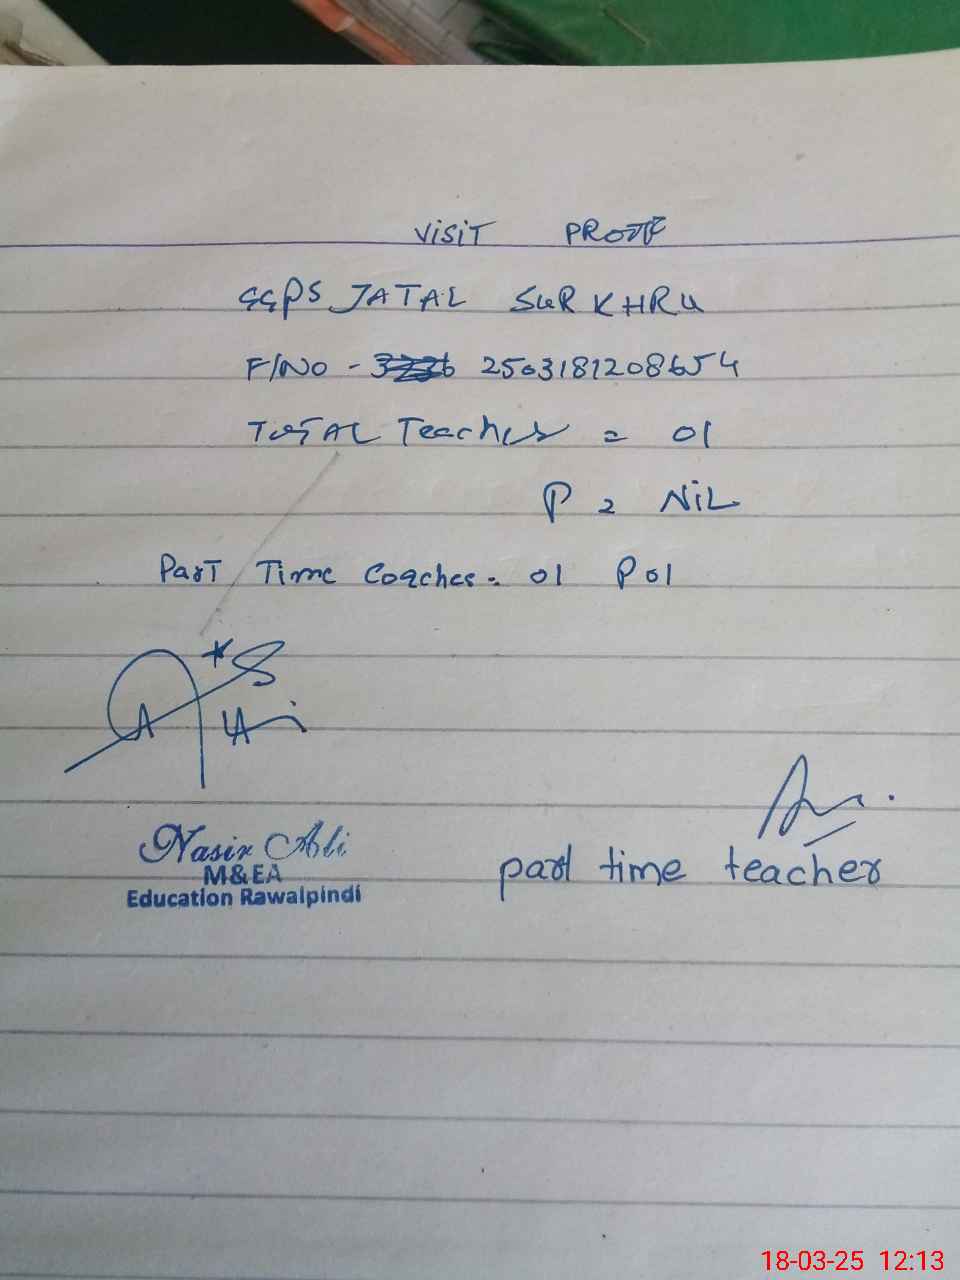 VISIT PROOF
GGPS JATAL SURKHRU
F/NO - 2503181208654
TOTAL Teacher = 01
P = NIL
Part Time Coaches = 01 P 01
Nasir Ali
M&EA
Education Rawalpindi
part time teacher
18-03-25 12:13